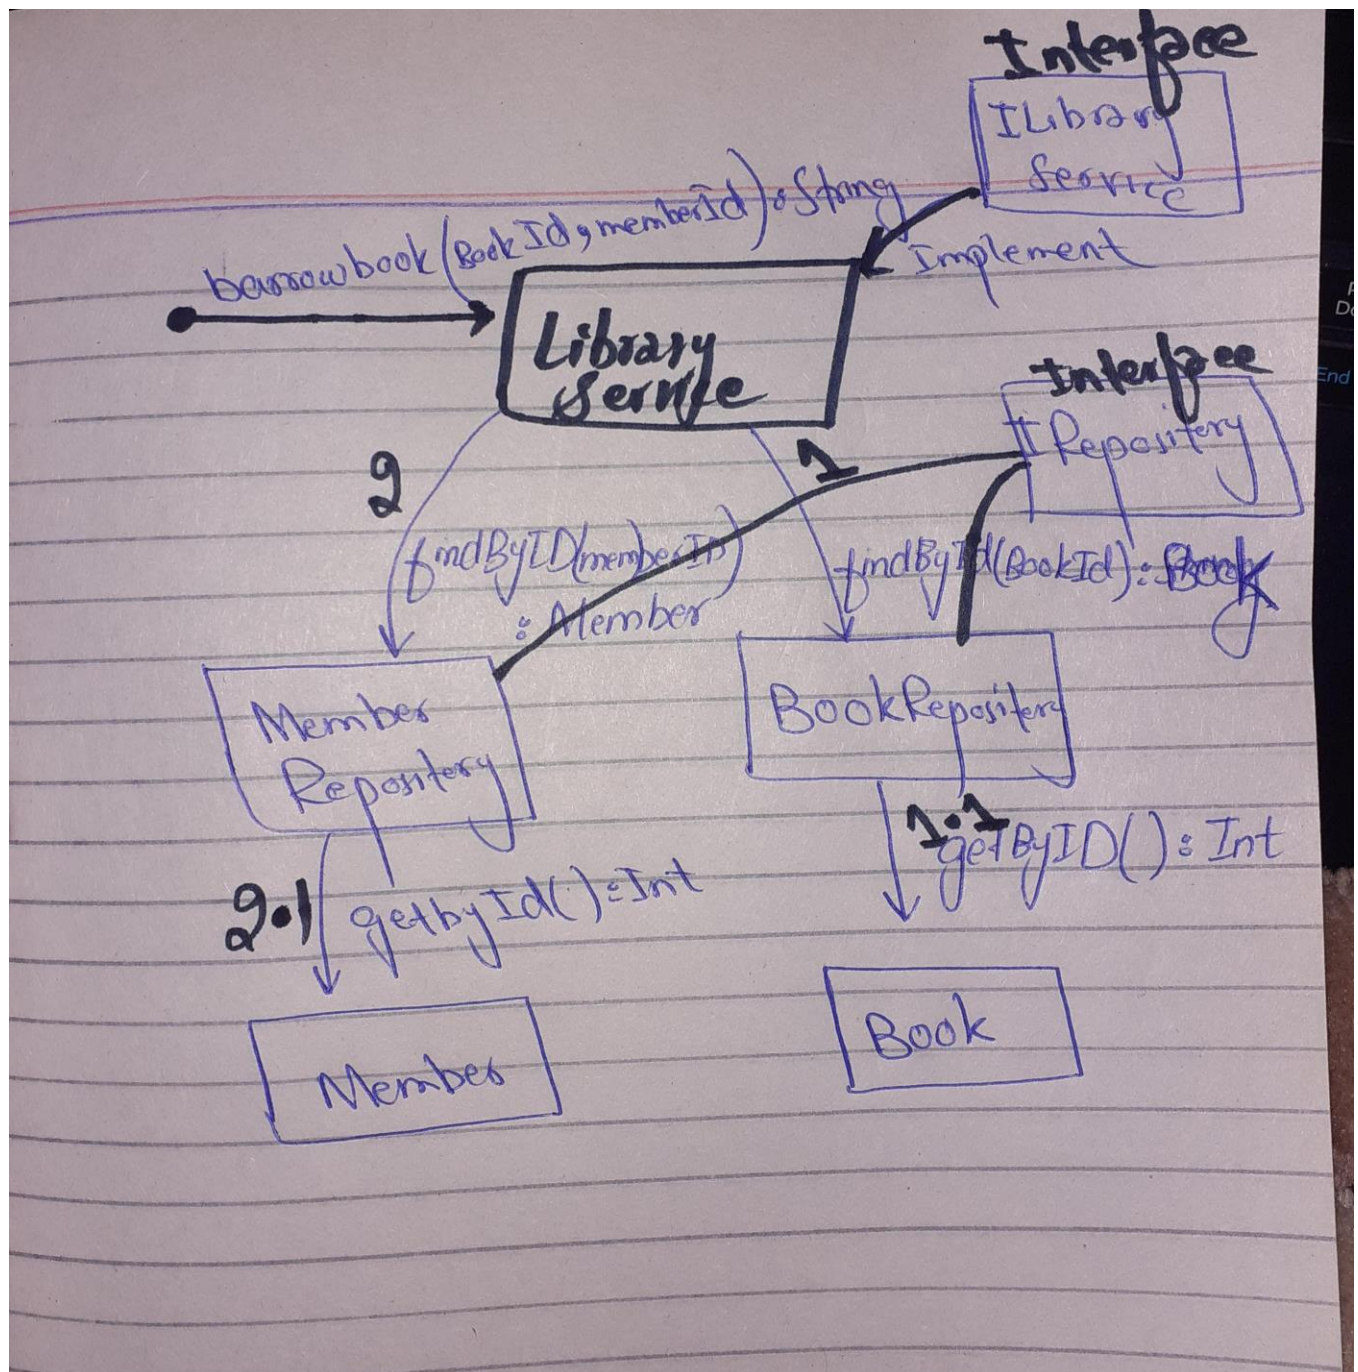 Interface
ILibrary
Service
barrowbook(BookId, memberId): String
Implement
Library
Service
Interface
IRepository
2
1
findByID(memberID)
: Member
findById(BookId): Book
Member
Repository
BookRepository
1.1
getByID(): Int
2.1
getbyId(): Int
Member
Book
End